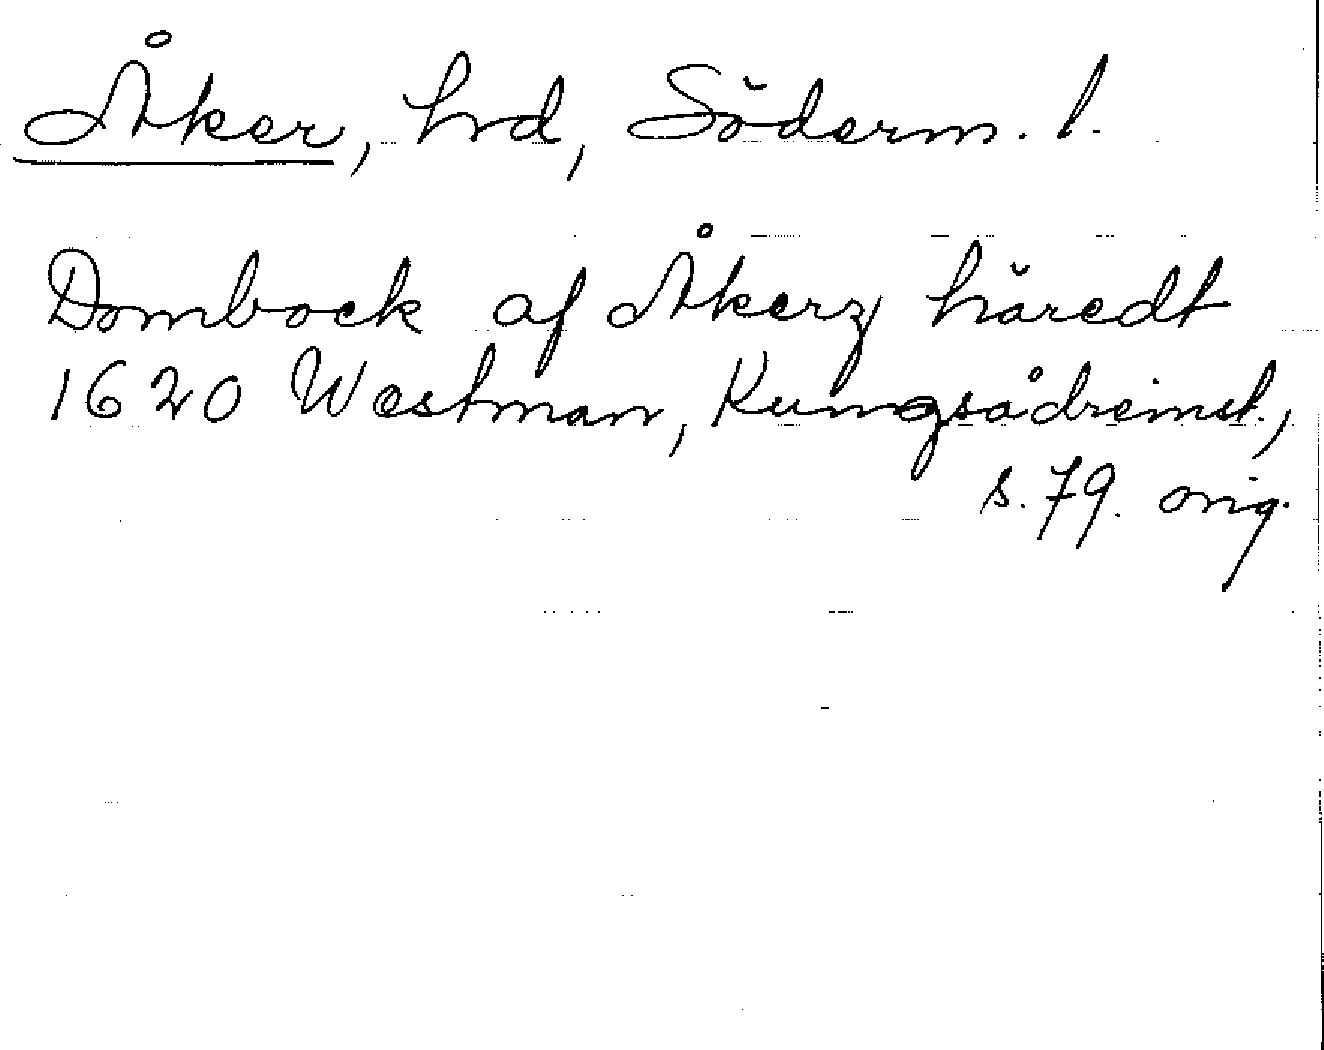 Åker, hrd, Söderm. l.
Dombock af Åkerz häredt
1620 Westman, Kungsådreinst.,
s. 79. orig.